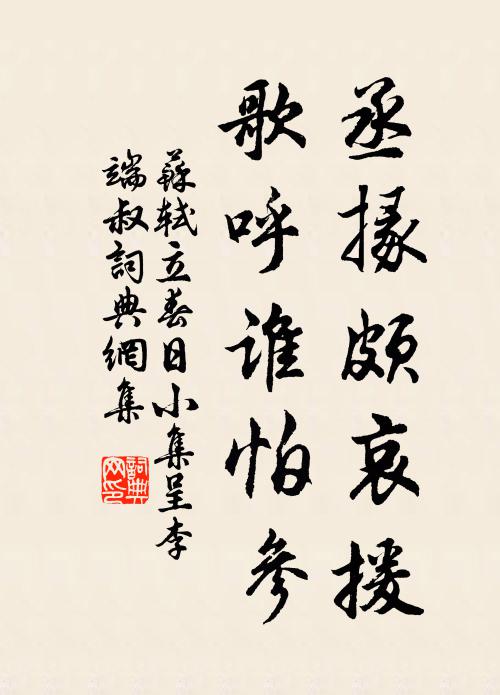 丞掾頗哀援
歌呼誰怕參
蘇軾立春日小集呈李
端叔詞典網集
詞典
网印